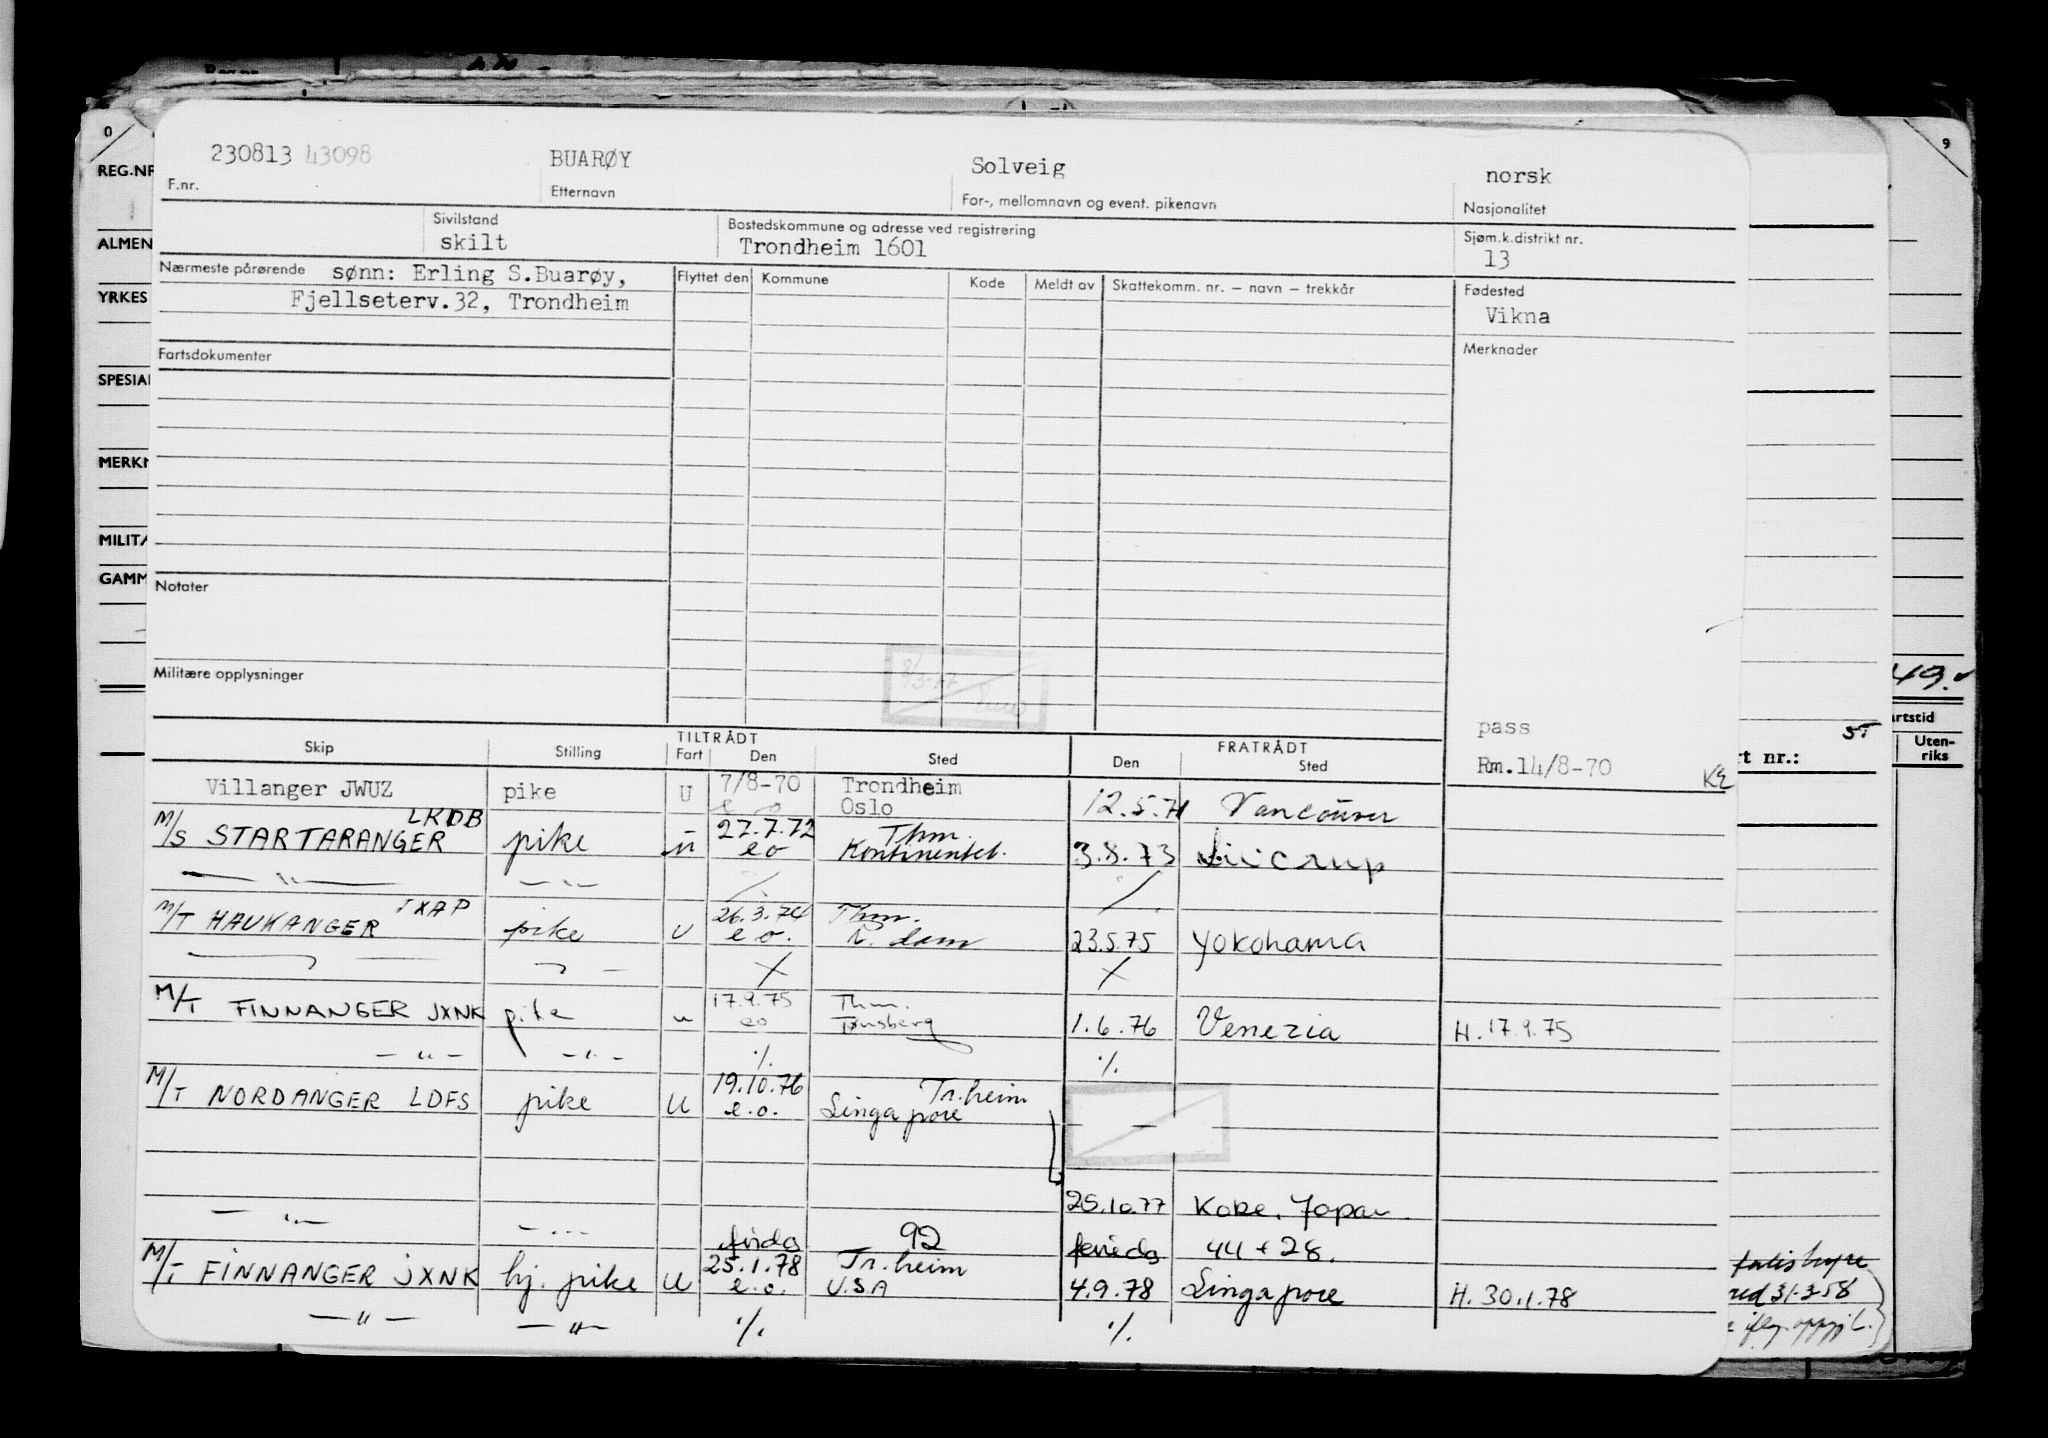 230813 43098 BUARØY Solveig norsk
F.nr. Etternavn For-, mellomnavn og event. pikenavn Nasjonalitet
Sivilstand Bostedskommune og adresse ved registrering Sjøm.k.distrikt nr.
skilt Trondheim 1601 13
Nærmeste pårørende sønn: Erling S.Buarøy, Flyttet den Kommune Kode Meldt av Skattekomm. nr. — navn — trekkår Fødested
Fjellseterv.32, Trondheim Vikna
Fartsdokumenter Merknader
Notater
Militære opplysninger
pass
Skip Stilling TILTRÅDT Fart Den Sted FRATRÅDT Den Sted
Rm.14/8-70 KE
Villanger JWUZ pike U 7/8-70 Trondheim
e o Oslo 12.5.71 Vancouver
LKDB 27.7.72 Thm.
M/S STARTARANGER pike u eo Kontinentet. 3.8.73
— " — — " — ./. ./.
JXAP 26.3.74 Thm.
M/T HAUKANGER pike U e.o. R.dam 23.5.75 Yokohama
17.9.75 Thm.
M/T FINNANGER JXNK pike u eo Tønsberg 1.6.76 Venezia H. 17.9.75
— " — — " — ./. ./.
19.10.76 Tr.heim
M/T NORDANGER LDFS pike U e.o. Singapore —
25.10.77 Kobe, Japan.
— " — — " —
92 44 + 28.
25.1.78 Tr.heim
M/T FINNANGER JXNK hj. pike U e.o. U.S.A 4.9.78 Singapore H. 30.1.78
— " — — " — ./. ./.
0
REG.NR
ALMEN
YRKES
SPESIAL
MERKN
MILITÆ
GAMM
9
49.
artstid
Uten-
riks
rt nr.:
red 31-3-58